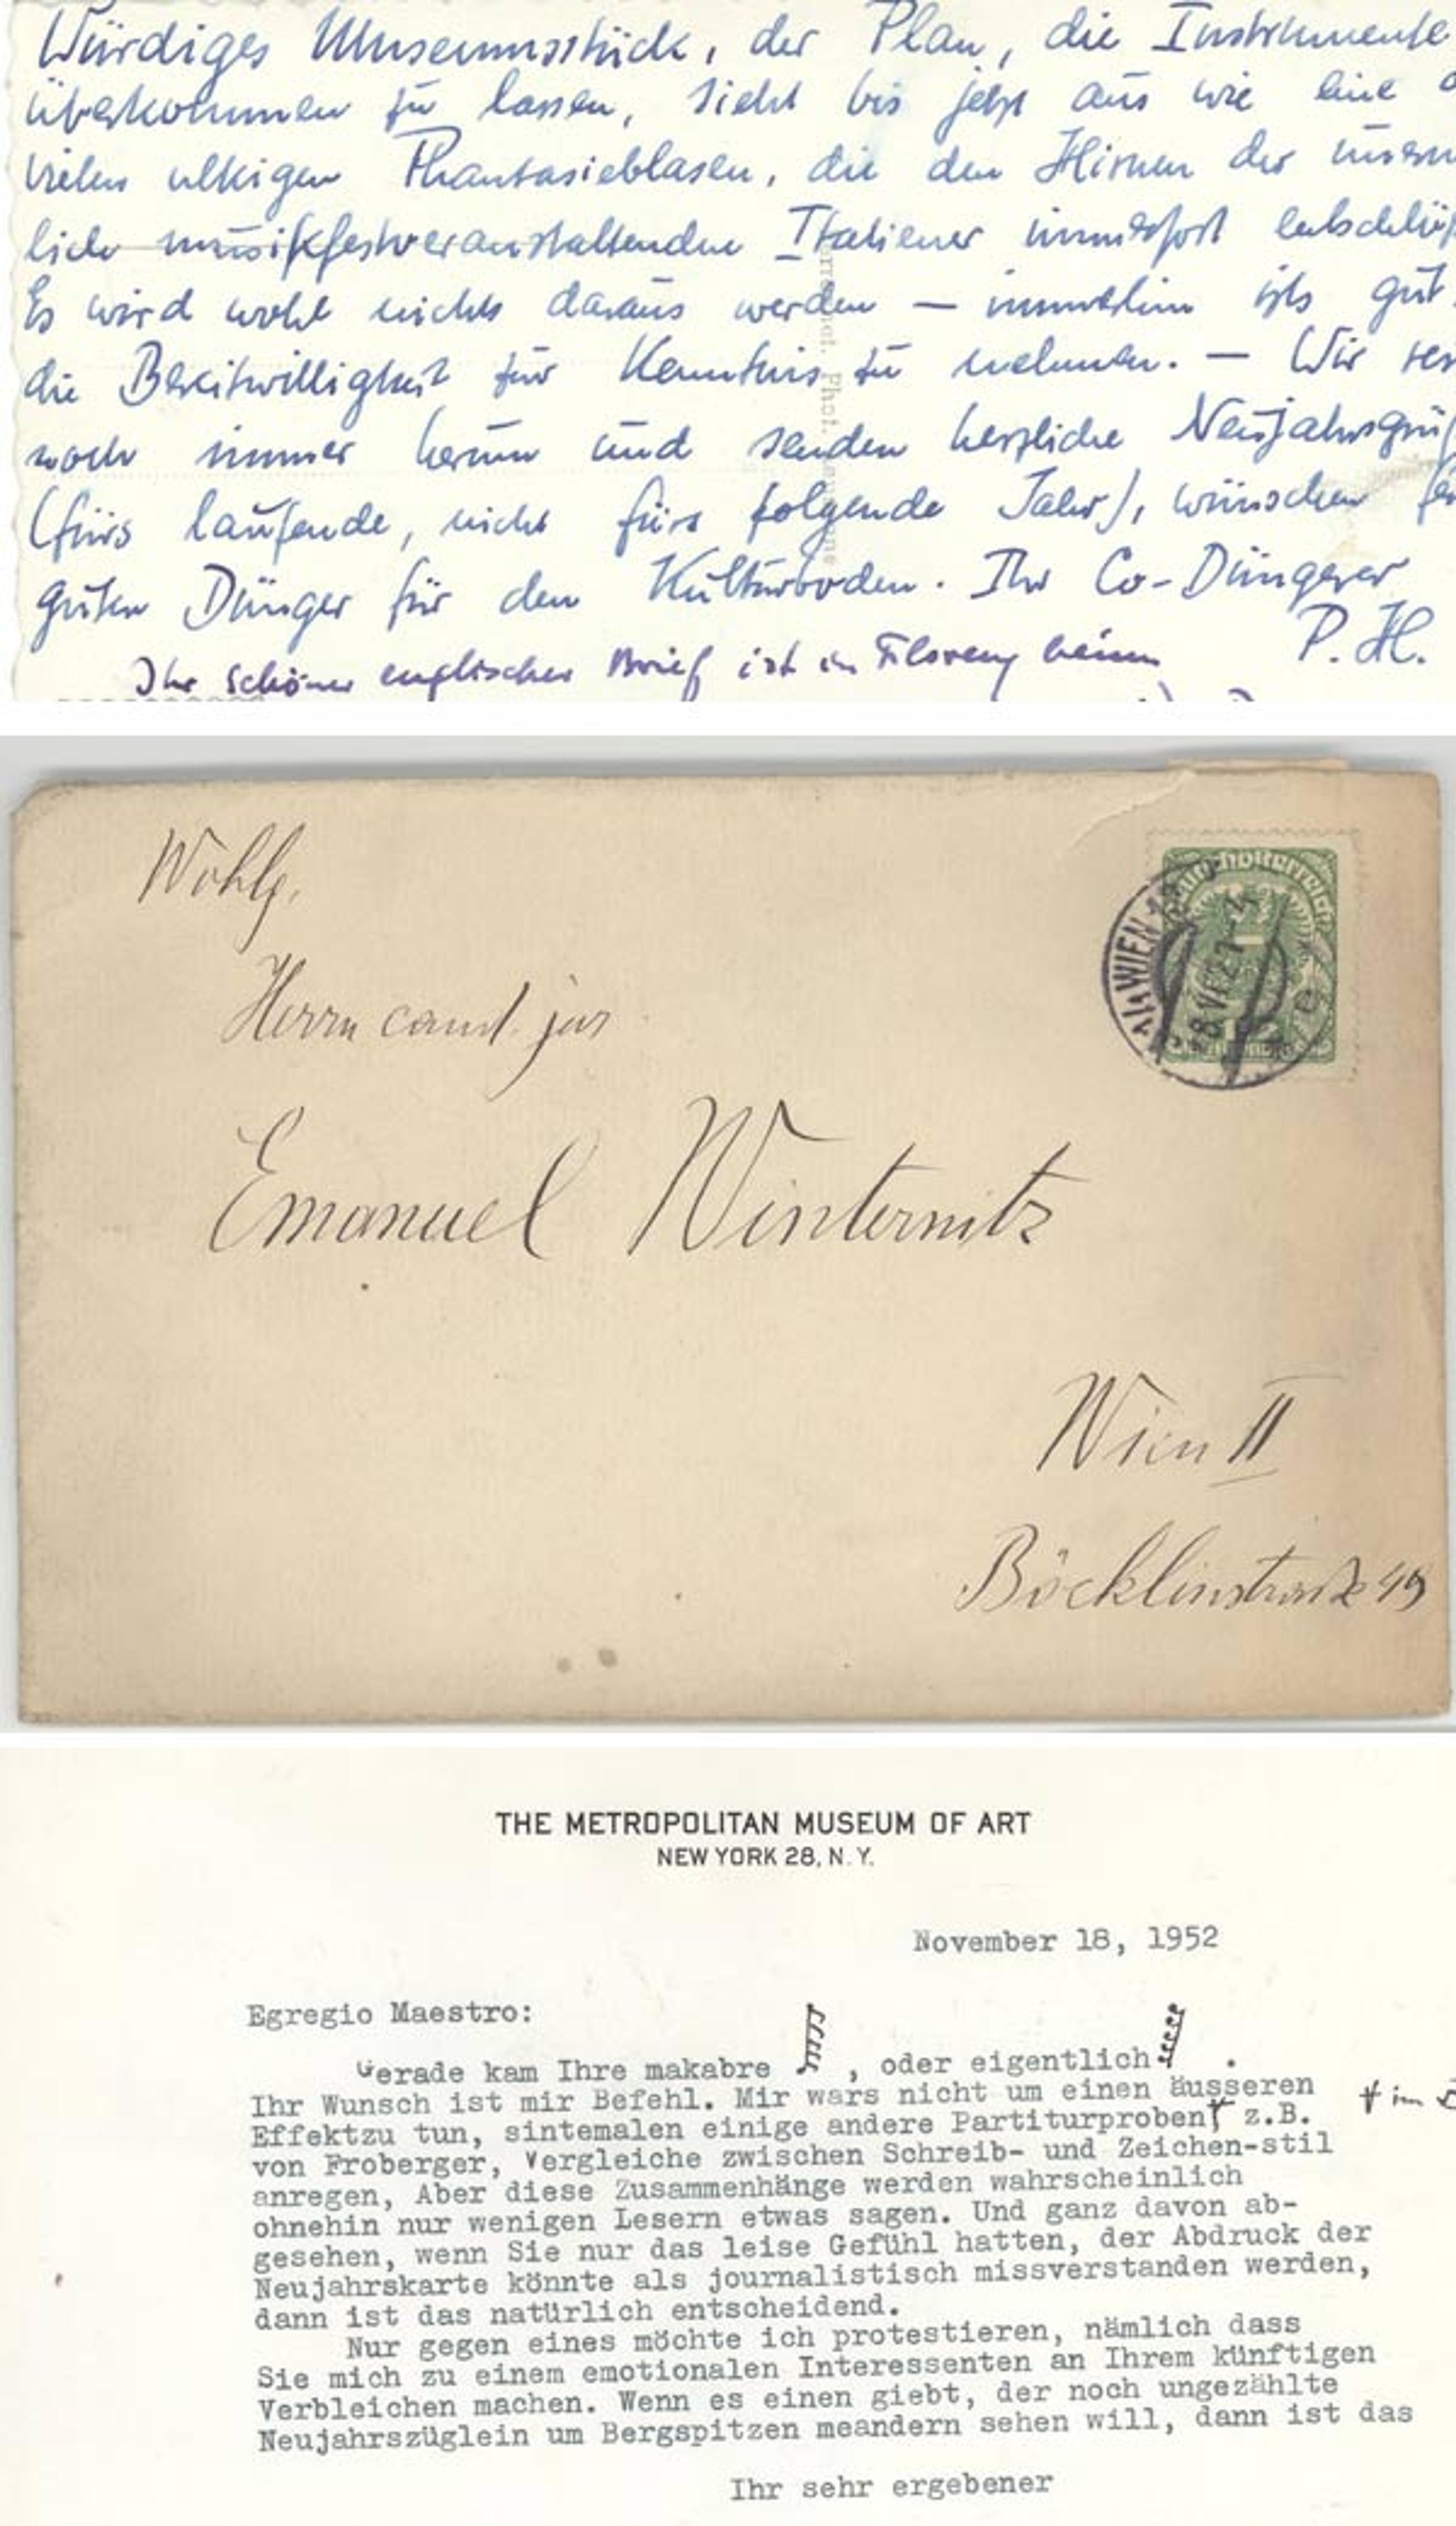 Würdiges Museumsstück, der Plan, die Instrumente
überkommen zu lassen, sieht bis jetzt aus wie eine
vielen ulkigen Phantasieblasen, die den Hirnen der
lich musikfestveranstaltenden Italiener immerfort entschlüp
Es wird wohl nichts daraus werden — immerhin ists gut
die Bereitwilligkeit zur Kenntnis zu nehmen. — Wir
noch immer herum und senden herzliche Neujahrsgrü
(fürs laufende, nicht fürs folgende Jahr), wünschen
guten Dünger für den Kulturboden. Ihr Co-Düngerer
P. H.
Ihr schöner englischer Brief ist in Florenz
Wohlg.
Herrn cand. jur
Emanuel Winternitz
Wien II
Böcklinstraße 49
Deutschösterreich
WIEN
8.VI.21
THE METROPOLITAN MUSEUM OF ART
NEW YORK 28, N. Y.
November 18, 1952
Egregio Maestro:
Gerade kam Ihre makabre , oder eigentlich .
Ihr Wunsch ist mir Befehl. Mir wars nicht um einen äusseren
Effektzu tun, sintemalen einige andere Partiturproben z.B. im
von Froberger, Vergleiche zwischen Schreib- und Zeichen-stil
anregen, Aber diese Zusammenhänge werden wahrscheinlich
ohnehin nur wenigen Lesern etwas sagen. Und ganz davon ab-
gesehen, wenn Sie nur das leise Gefühl hatten, der Abdruck der
Neujahrskarte könnte als journalistisch missverstanden werden,
dann ist das natürlich entscheidend.
Nur gegen eines möchte ich protestieren, nämlich dass
Sie mich zu einem emotionalen Interessenten an Ihrem künftigen
Verbleichen machen. Wenn es einen giebt, der noch ungezählte
Neujahrszüglein um Bergspitzen meandern sehen will, dann ist das
Ihr sehr ergebener